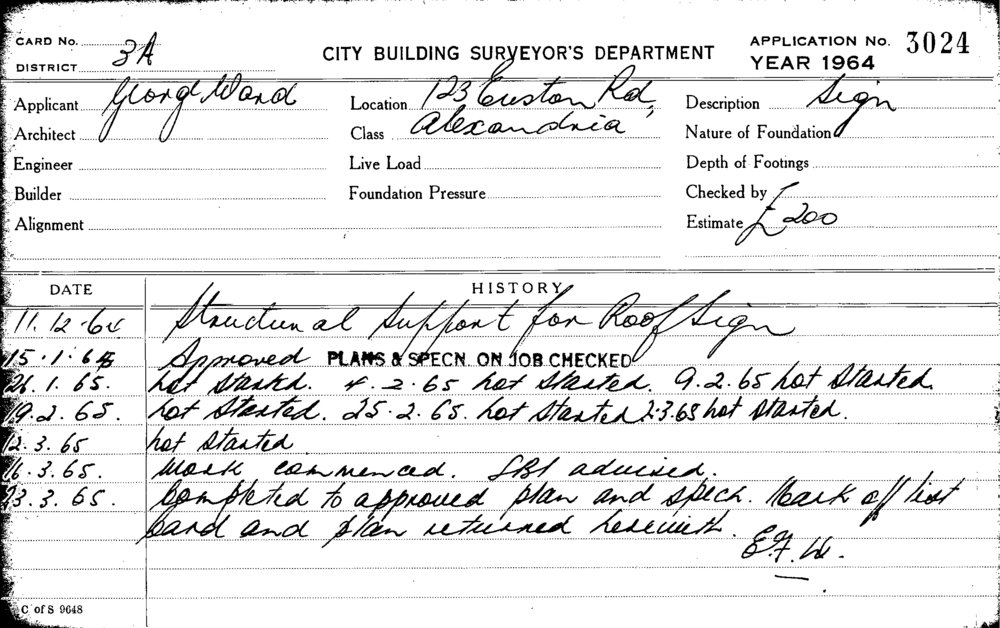 CARD No.
DISTRICT 3A
CITY BUILDING SURVEYOR'S DEPARTMENT
APPLICATION No. 3024
YEAR 1964
Applicant George Ward
Location 123 Euston Rd,
Description Sign
Architect
Class Alexandria
Nature of Foundation
Engineer
Live Load
Depth of Footings
Builder
Foundation Pressure
Checked by
Alignment
Estimate £200
DATE HISTORY
11.12.64 Structural Support for Roof Sign
15.1.65 Approved PLANS & SPECN. ON JOB CHECKED
1.65. not started. 4.2.65 not started. 9.2.65 not started.
19.2.65. not started. 25.2.65. not started 2.3.65 not started.
12.3.65 not started
16.3.65. Work commenced. advised.
23.3.65. Completed to approved plan and specn. Mark off list
card and plan returned herewith.
C of S 9648